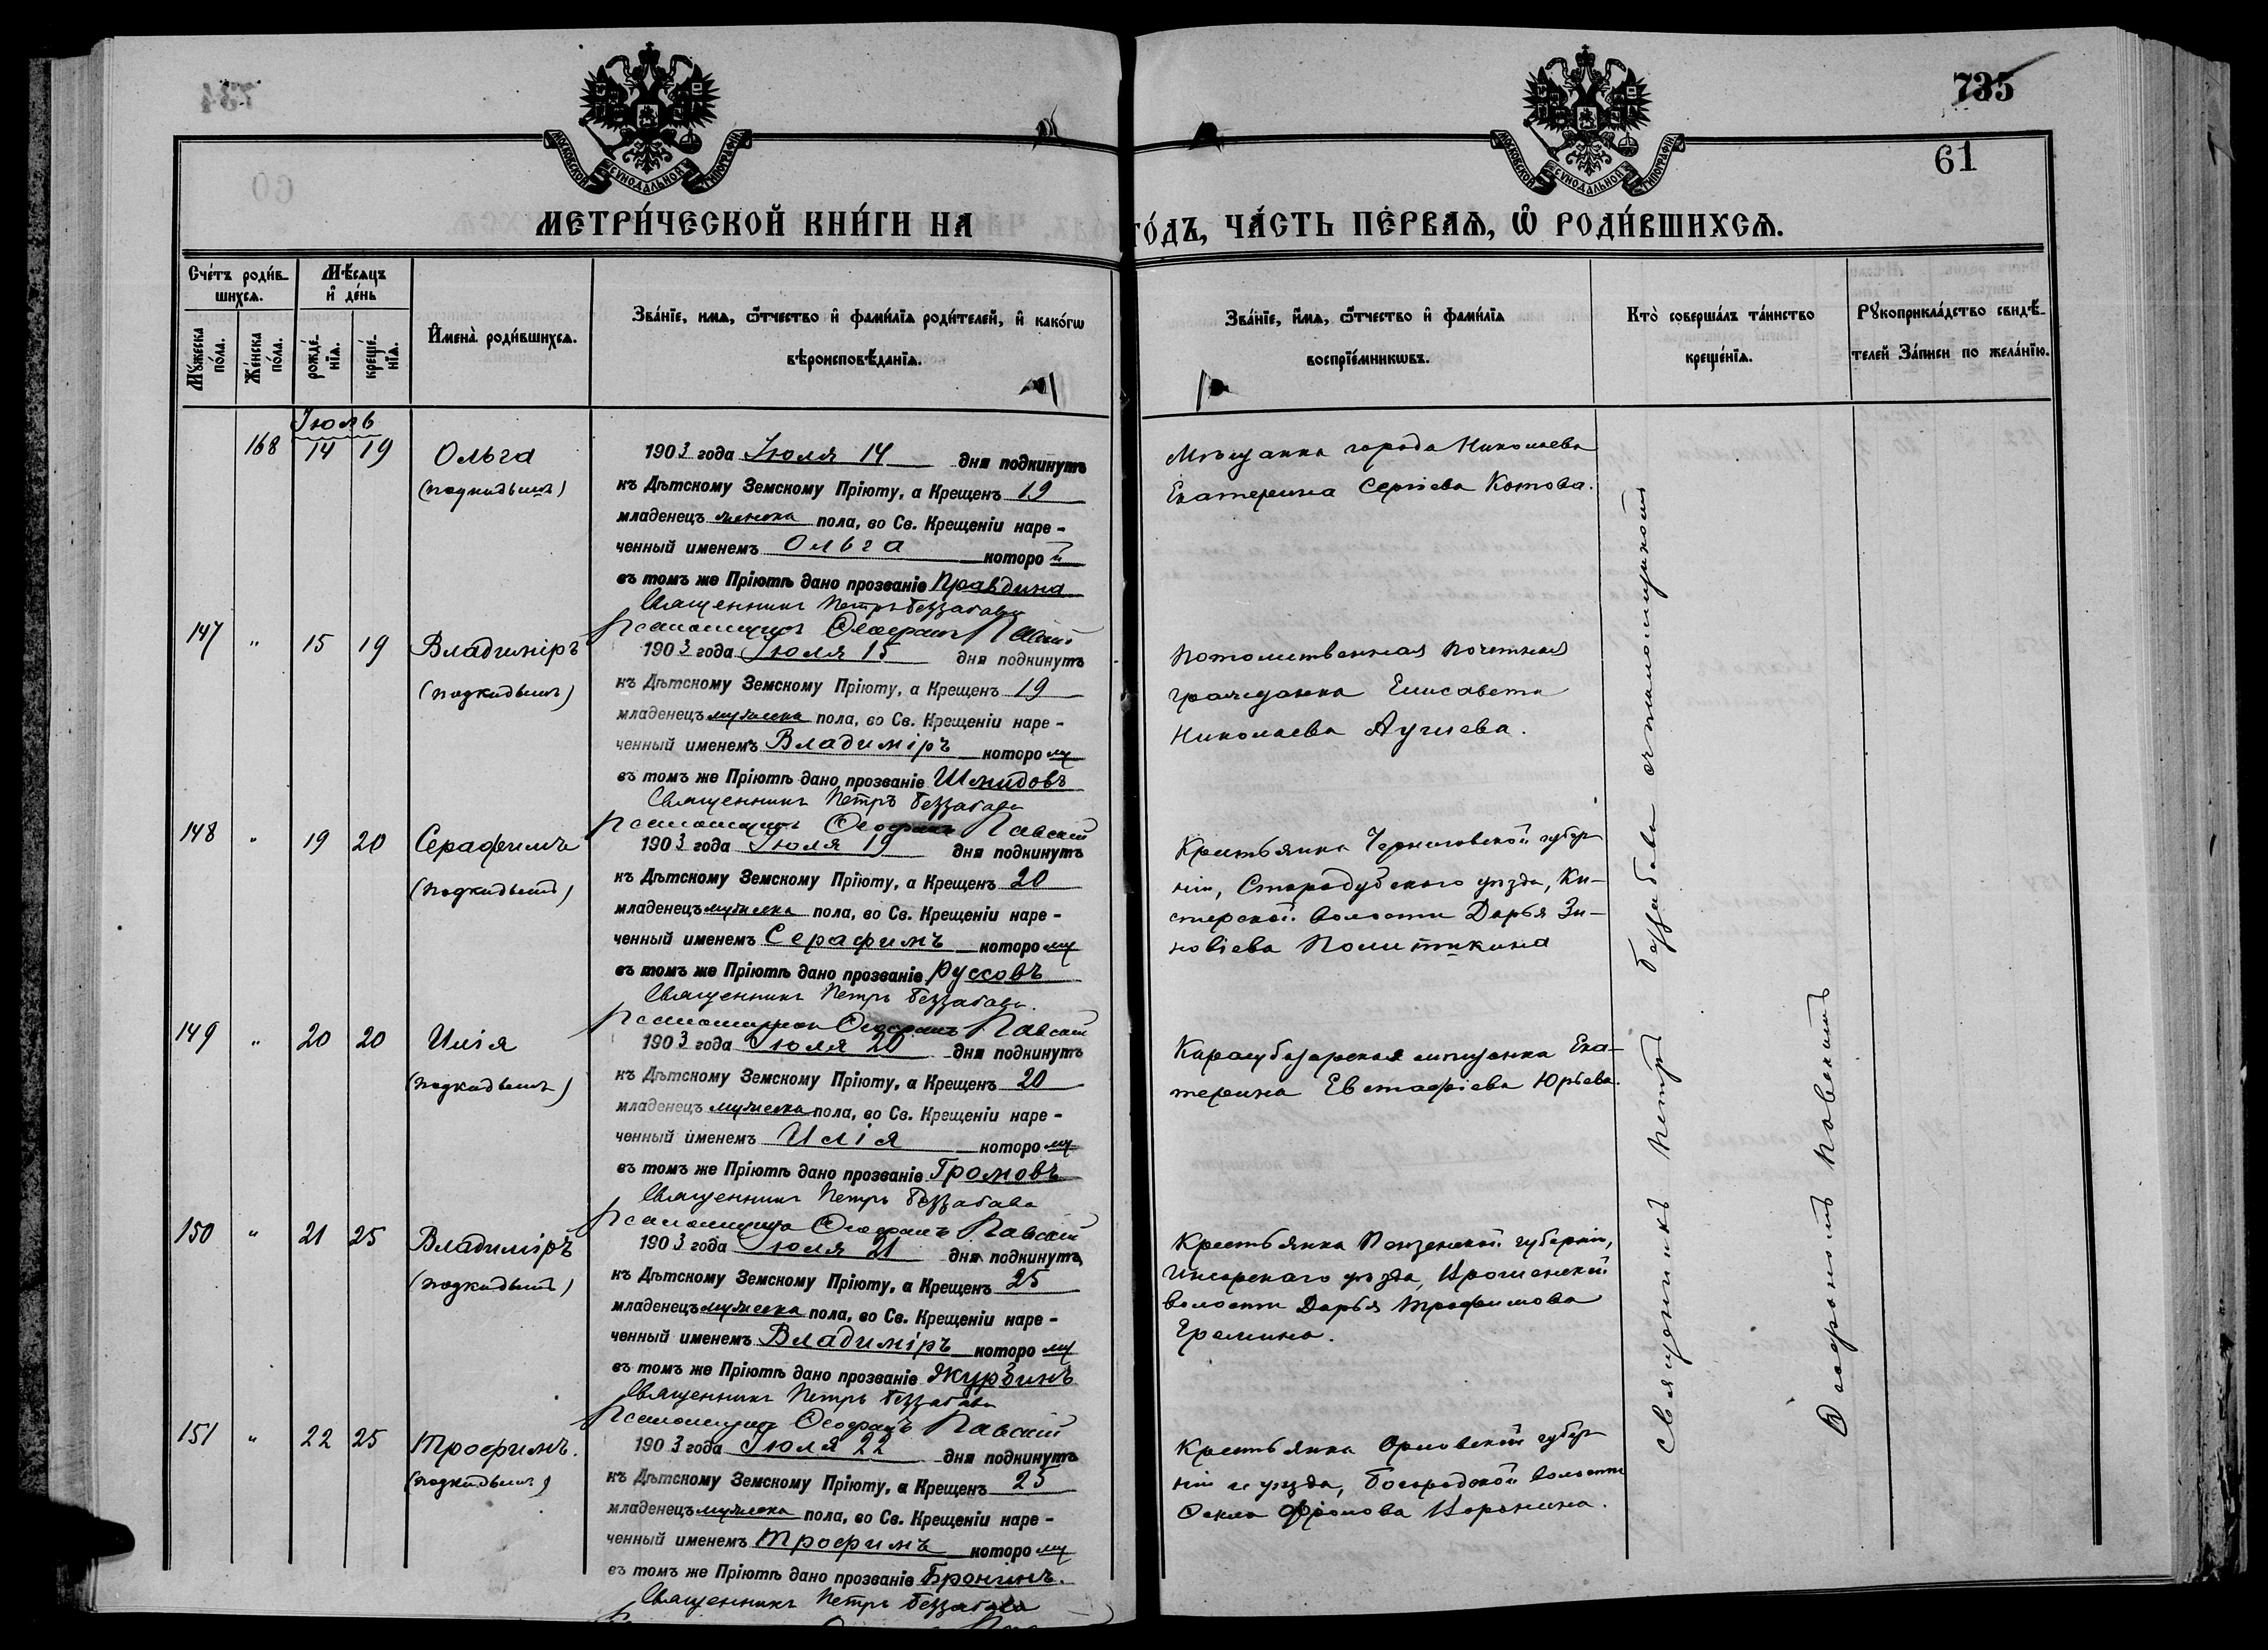 734
735
60
61
МОСКОВСКОЙ СУНОДАЛЬНОЙ ТИПОГРАФІИ
МОСКОВСКОЙ СУНОДАЛЬНОЙ ТИПОГРАФІИ
МЕТРИ́ЧЕСКОЙ КНИ́ГИ НА
ГО́ДЪ, ЧА́СТЬ ПЕ́РВАѦ, Ѽ РОДИ́ВШИХСѦ.
Сче́тъ роди́в-
шихсѧ.
Мꙋжеска по́ла.
Же́нска по́ла.
Мѣ́сяцъ
и҆ де́нь
рожде́-
нїѧ.
креще́-
нїѧ.
И҆мена̀ роди́вшихсѧ.
Зва́нїе, имѧ, ѻ҆́тчество и҆ фами́лїѧ роди́телей, и҆ како́гѡ
вѣроисповѣ́данїѧ.
Зва́нїе, и҆́мѧ, ѻ҆́тчество и҆ фами́лїѧ
воспрїе́мникѡвъ.
Кто̀ соверша́лъ та́инство
креще́нїѧ.
Рꙋкоприкла́дство свидѣ́-
телей За́писи по жела́нїю.
Іюль
168 14 19 Ольга
(подкидышъ)
1903 года Іюля 14 дня подкинутъ
къ Дѣтскому Земскому Пріюту, а Крещенъ 19
младенецъ женска пола, во Св. Крещеніи наре-
ченный именемъ Ольга которой
въ томъ же Пріютѣ дано прозваніе Правдина
Священникъ Петръ Беззабава
Псаломщикъ Ѳеофанъ Павскій
Мѣщанка города Николаева
Екатерина Сергіева Котова.
147 " 15 19 Владиміръ
(подкидышъ)
1903 года Іюля 15 дня подкинутъ
къ Дѣтскому Земскому Пріюту, а Крещенъ 19
младенецъ мужеска пола, во Св. Крещеніи наре-
ченный именемъ Владиміръ которому
въ томъ же Пріютѣ дано прозваніе Шмидовъ
Священникъ Петръ Беззабава
Псаломщикъ Ѳеофанъ Павскій
Потомственная почетная
гражданка Елисавета
Николаева
148 " 19 20 Серафимъ
(подкидышъ)
1903 года Іюля 19 дня подкинутъ
къ Дѣтскому Земскому Пріюту, а Крещенъ 20
младенецъ мужеска пола, во Св. Крещеніи наре-
ченный именемъ Серафимъ которому
въ томъ же Пріютѣ дано прозваніе Руссовъ
Священникъ Петръ Беззабава
Псаломщикъ Ѳеофанъ Павскій
Крестьянка Черниговской губер-
ніи, Стародубскаго уѣзда, Ки-
стерской волости Дарья Зи-
новіева
149 " 20 20 Илія
(подкидышъ)
1903 года Іюля 20 дня подкинутъ
къ Дѣтскому Земскому Пріюту, а Крещенъ 20
младенецъ мужеска пола, во Св. Крещеніи наре-
ченный именемъ Илія которому
въ томъ же Пріютѣ дано прозваніе Громовъ
Священникъ Петръ Беззабава
Псаломщикъ Ѳеофанъ Павскій
Карасубазарская мѣщанка Ека-
терина Евстафіева Юрьева.
150 " 21 25 Владиміръ
(подкидышъ)
1903 года Іюля 21 дня подкинутъ
къ Дѣтскому Земскому Пріюту, а Крещенъ 25
младенецъ мужеска пола, во Св. Крещеніи наре-
ченный именемъ Владиміръ которому
въ томъ же Пріютѣ дано прозваніе Журбинъ
Священникъ Петръ Беззабава
Псаломщикъ Ѳеофанъ Павскій
Крестьянка Пензенской губерніи,
Инсарскаго уѣзда,
волости Дарья Трофимова
Еремина.
151 " 22 25 Трофимъ.
(подкидышъ)
1903 года Іюля 22 дня подкинутъ
къ Дѣтскому Земскому Пріюту, а Крещенъ 25
младенецъ мужеска пола, во Св. Крещеніи наре-
ченный именемъ Трофимъ которому
въ томъ же Пріютѣ дано прозваніе Бронинъ.
Священникъ Петръ Беззабава
Крестьянка Орловской губер-
ніи и уѣзда, Богородской волости
Ѳекла Фролова
Священникъ Петръ Беззабава съ псаломщикомъ
Ѳеофаномъ Павскимъ